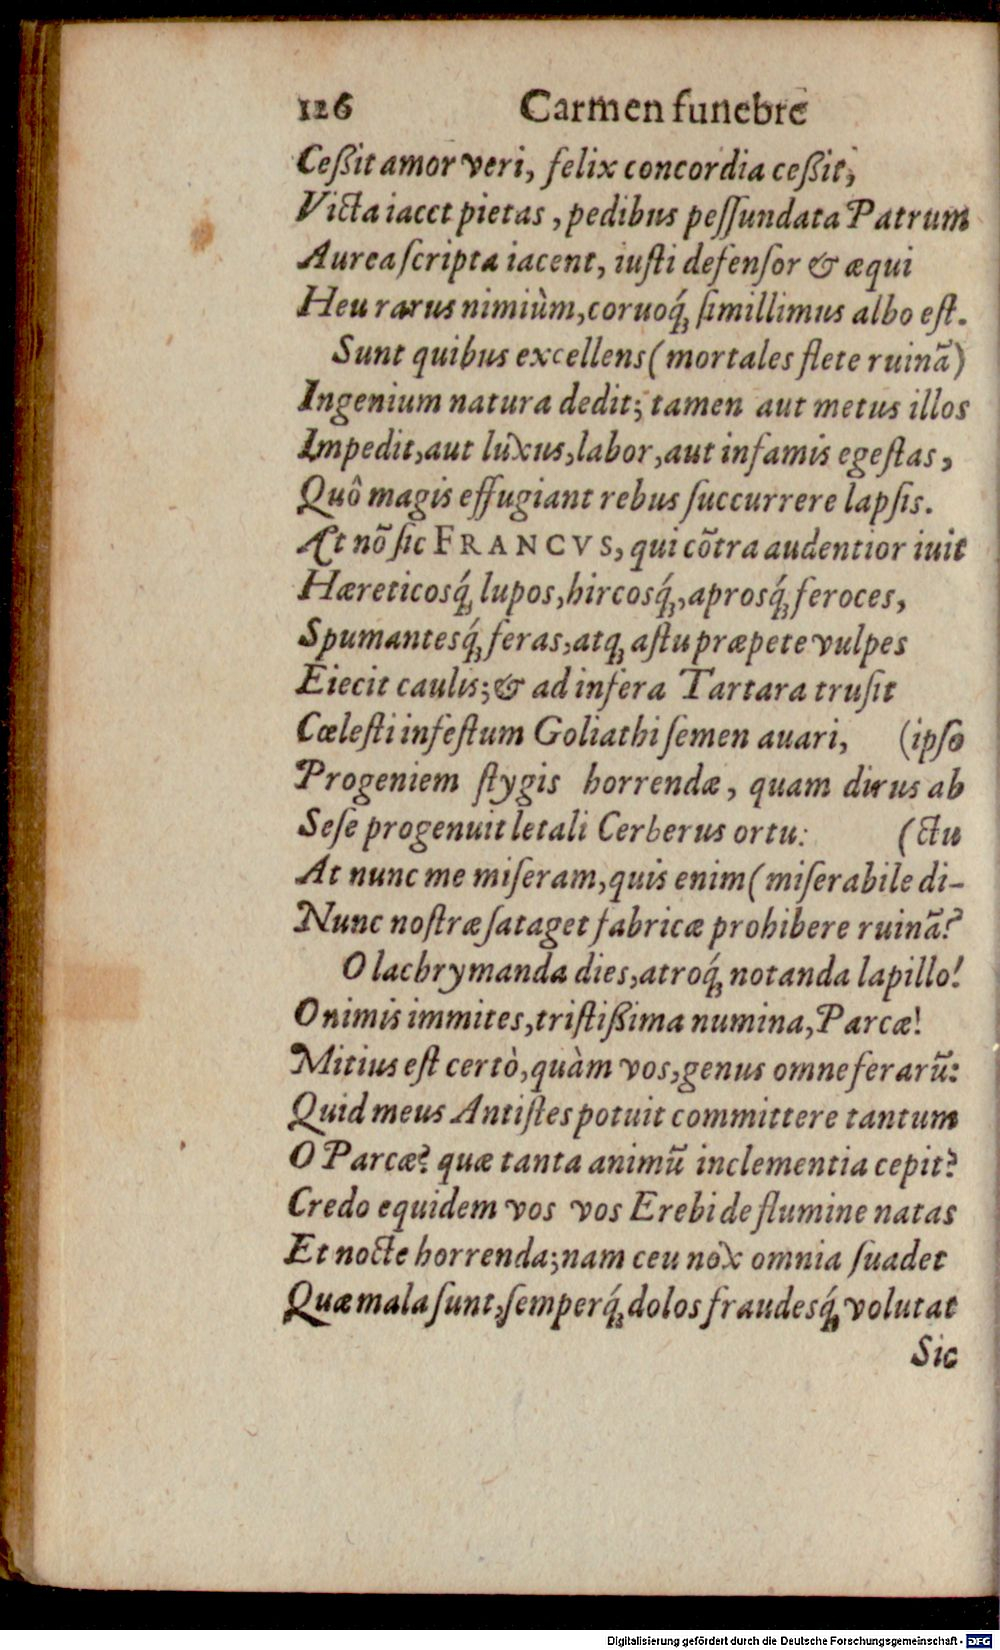 126 Carmen funebre
Ceßit amor veri, felix concordia ceßit;
Victa iacet pietas, pedibus peſſundata Patrum
Aurea ſcripta iacent, iuſti defenſor & æqui
Heu rarus nimiùm, coruoq́ꝫ ſimillimus albo eſt.
Sunt quibus excellens (mortales flete ruinã)
Ingenium natura dedit; tamen aut metus illos
Impedit, aut luxus, labor, aut infamis egeſtas,
Quô magis effugiant rebus ſuccurrere lapſis.
Æt nõ ſic FRANCVS, qui cõtra audentior iuit
Hæreticosq́ꝫ lupos, hircosq́ꝫ, aprosq́ꝫ feroces,
Spumantesq́ꝫ feras, atqꝫ aſtu præpete vulpes
Eiecit caulis; & ad infera Tartara truſit
Cœleſti infeſtum Goliathi ſemen auari, (ipſo
Progeniem ſtygis horrendæ, quam dirus ab
Seſe progenuit letali Cerberus ortu: (ctu
At nunc me miſeram, quis enim (miſerabile di-
Nunc noſtræ ſataget fabricæ prohibere ruinã?
O lachrymanda dies, atroq́ꝫ notanda lapillo!
O nimis immites, triſtißima numina, Parcæ!
Mitius eſt certò, quàm vos, genus omne ferarũ:
Quid meus Antiſtes potuit committere tantum
O Parcæ? quæ tanta animũ inclementia cepit?
Credo equidem vos vos Erebi de flumine natas
Et nocte horrenda; nam ceu nox omnia ſuadet
Quæ mala ſunt, ſemperq́ꝫ dolos fraudesq́ꝫ volutat
Sic
Digitalisierung gefördert durch die Deutsche Forschungsgemeinschaft - DFG